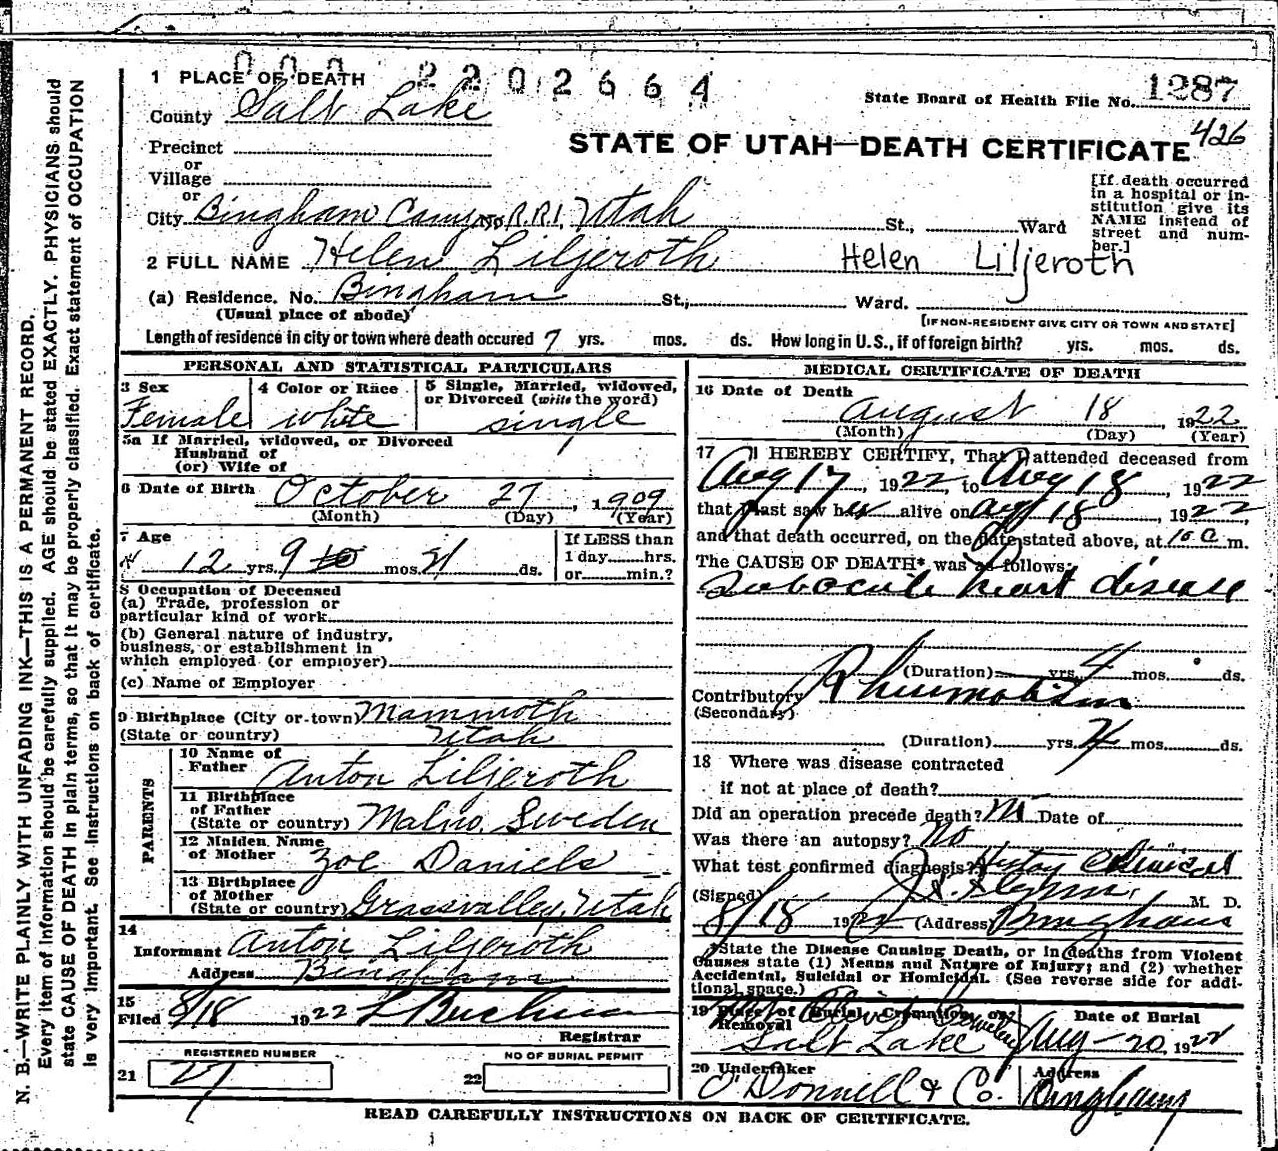 0 0 0 2 2 0 2 6 6 4
1 PLACE OF DEATH
State Board of Health File No. 1287
County Salt Lake
426
STATE OF UTAH—DEATH CERTIFICATE
Precinct
or
Village
or
City Bingham Canyon R.R.1, Utah St., Ward
[If death occurred
in a hospital or in-
stitution give its
NAME instead of
street and num-
ber.]
2 FULL NAME Helen Liljeroth Helen Liljeroth
(a) Residence. No. Bingham St., Ward.
(Usual place of abode)
[IF NON-RESIDENT GIVE CITY OR TOWN AND STATE]
Length of residence in city or town where death occured 7 yrs. mos. ds. How long in U.S., if of foreign birth? yrs. mos. ds.
PERSONAL AND STATISTICAL PARTICULARS
3 Sex
Female
4 Color or Race
white
5 Single, Married, widowed,
or Divorced (write the word)
single
5a If Married, widowed, or Divorced
Husband of
(or) Wife of
6 Date of Birth October 27, 1909
(Month) (Day) (Year)
7 Age
12 yrs. 9 mos. 21 ds.
If LESS than
1 day hrs.
or min.?
8 Occupation of Deceased
(a) Trade, profession or
particular kind of work
(b) General nature of industry,
business, or establishment in
which employed (or employer)
(c) Name of Employer
9 Birthplace (City or town) Mammoth
(State or country) Utah
PARENTS
10 Name of
Father Anton Liljeroth
11 Birthplace
of Father
(State or country) Malmo, Sweden
12 Maiden Name
of Mother Zoe Daniels
13 Birthplace
of Mother
(State or country) Grassvalley, Utah
14
Informant Anton Liljeroth
Address Bingham
15
Filed 8/18 1922
Registrar
REGISTERED NUMBER
21 27
NO OF BURIAL PERMIT
22
MEDICAL CERTIFICATE OF DEATH
16 Date of Death
August 18, 1922
(Month) (Day) (Year)
17 I HEREBY CERTIFY, That I attended deceased from
Aug 17, 1922, to Aug 18, 1922
that I last saw her alive on Aug 18, 1922
and that death occurred, on the date stated above, at 10 a m.
The CAUSE OF DEATH* was as follows:
Subacute heart disease
(Duration) yrs. 4 mos. ds.
Contributory Rheumatism
(Secondary)
(Duration) yrs. 4 mos. ds.
18 Where was disease contracted
if not at place of death?
Did an operation precede death? No Date of
Was there an autopsy? No
What test confirmed diagnosis? History Clinical
(Signed) M. D.
8/18 1922 (Address) Bingham
*State the Disease Causing Death, or in deaths from Violent
Causes state (1) Means and Nature of Injury; and (2) whether
Accidental, Suicidal or Homicidal. (See reverse side for addi-
tional space.)
19 Place of Burial, Cremation, or
Removal
Mt. Olivet Cemetery
Salt Lake
Date of Burial
Aug - 20, 1922
20 Undertaker
O'Donnell & Co.
Address
Bingham
READ CAREFULLY INSTRUCTIONS ON BACK OF CERTIFICATE.
N. B.—WRITE PLAINLY WITH UNFADING INK—THIS IS A PERMANENT RECORD.
Every item of information should be carefully supplied. AGE should be stated EXACTLY. PHYSICIANS should
state CAUSE OF DEATH in plain terms, so that it may be properly classified. Exact statement of OCCUPATION
is very important. See instructions on back of certificate.